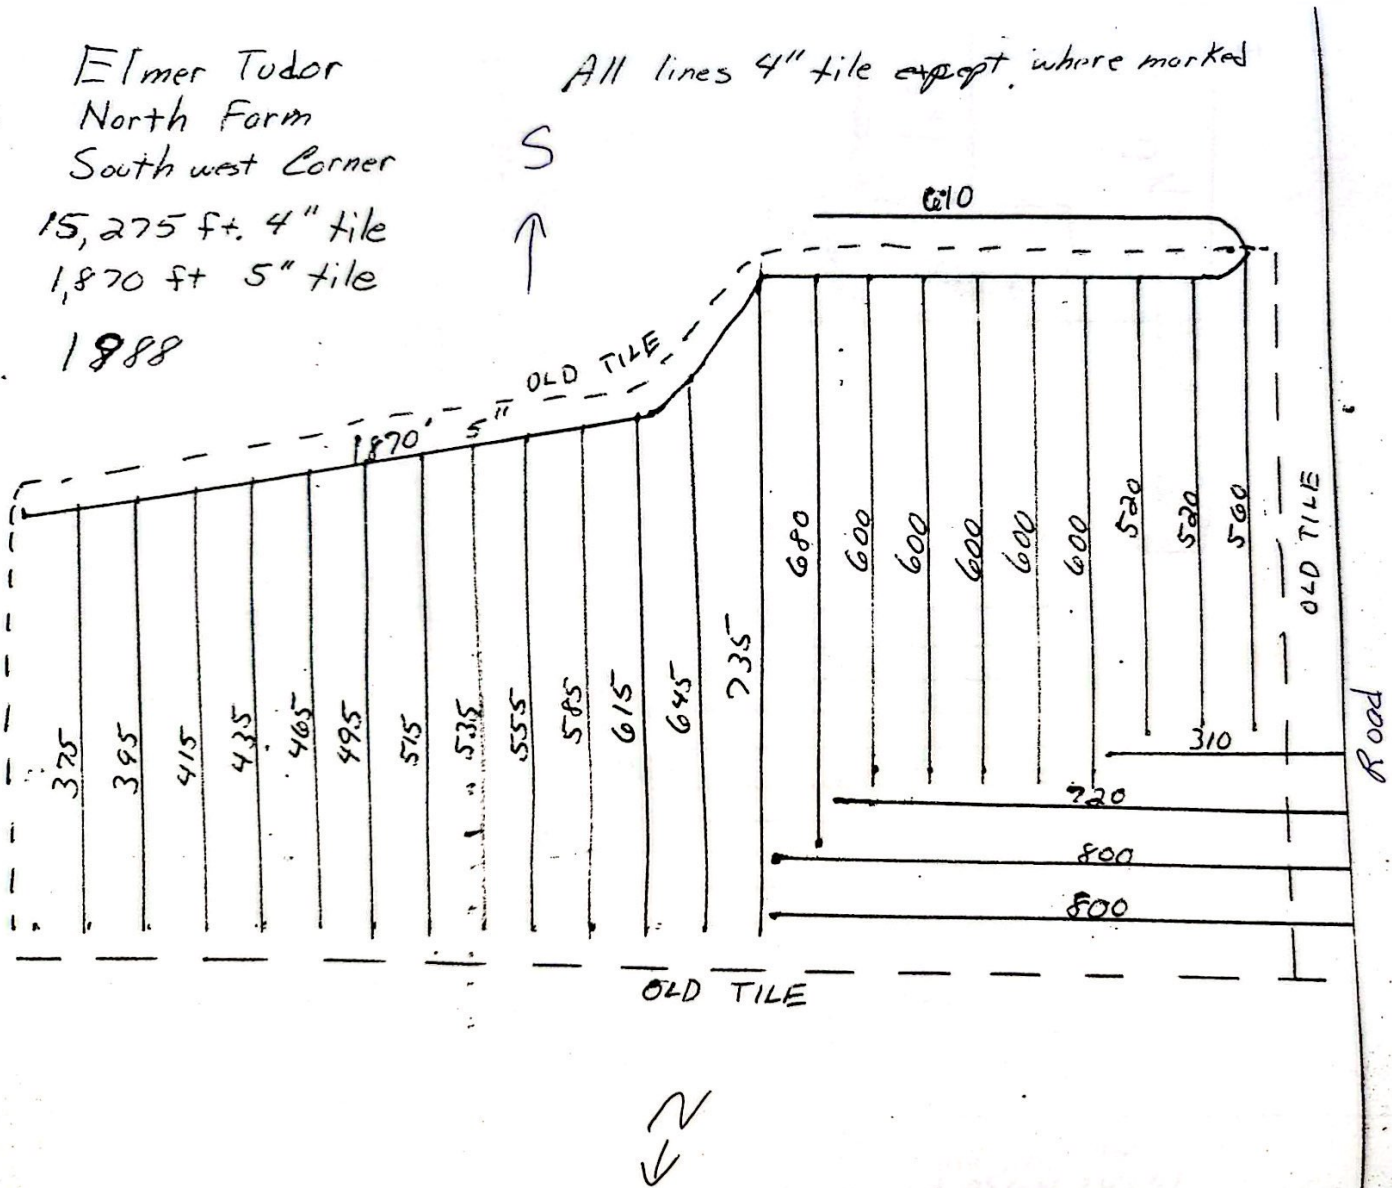 Elmer Tudor
North Farm
South west Corner
15,275 ft. 4" tile
1,870 ft 5" tile
1988
All lines 4" tile except where marked
S
610
OLD TILE
1870' 5"
375
395
415
435
465
495
515
535
555
585
615
645
735
680
600
600
600
600
600
520
520
560
OLD TILE
Road
310
720
800
800
OLD TILE
N